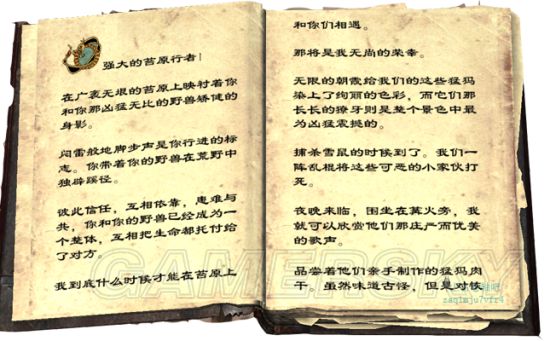 强大的苔原行者
在广袤无垠的苔原上映衬着你
和你那凶猛无比的野兽矫健的
身影。
闷雷般地脚步声是你行进的标
志。你带着你的野兽在荒野中
独辟蹊径。
彼此信任，互相依靠，患难与
共，你和你的野兽已经成为一
个整体，互相把生命都托付给
了对方。
我到底什么时候才能在苔原上
和你们相遇。
那将是我无尚的荣幸。
无限的朝霞给我们的这些猛犸
染上了绚丽的色彩，而它们那
长长的獠牙则是整个景色中最
为凶猛震撼的。
捕杀雪鼠的时候到了。我们一
阵乱棍将这些可恶的小家伙打
死。
夜晚来临，围坐在篝火旁，我
就可以欣赏他们那庄严而优美
的歌声。
品尝着他们亲手制作的猛犸肉
干。虽然味道古怪，但是对恢
GAMERSKY
zaq1mju7vfr4